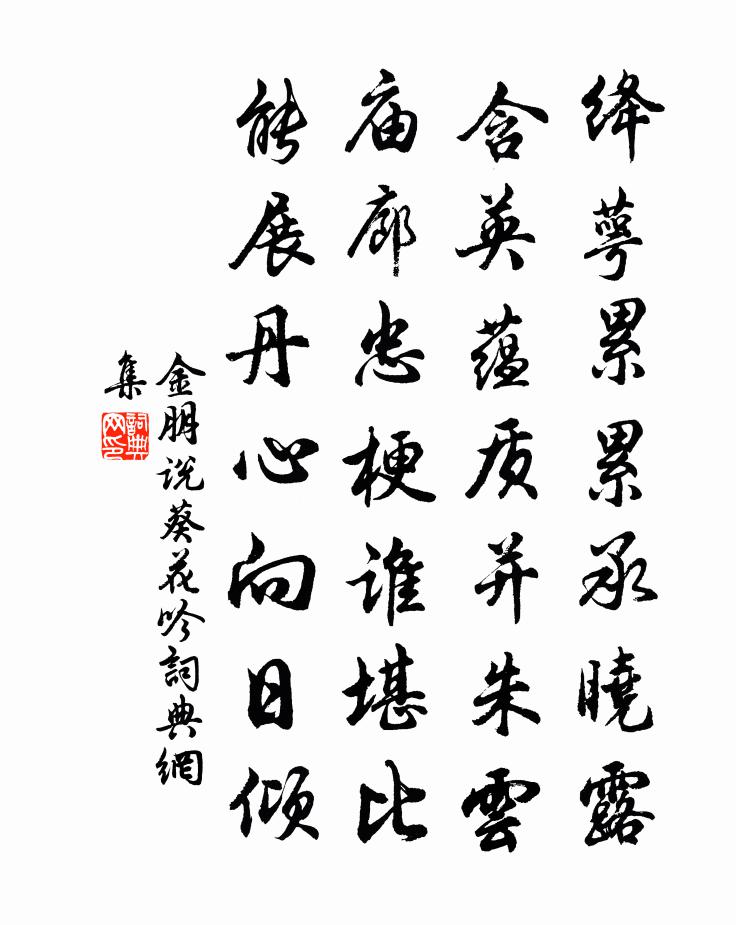 绛萼累累承曉露
含英蕴质并朱雲
庙廊忠梗谁堪比
能展丹心向日倾
金朋说葵花吟詞典網
集
詞典网印